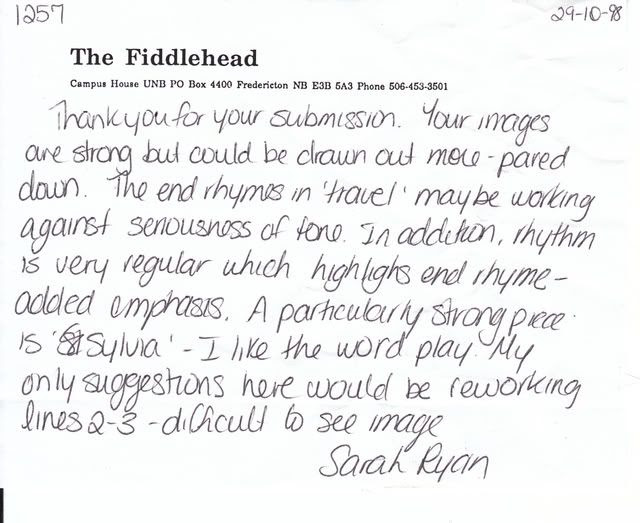 1257
29-10-98
The Fiddlehead
Campus House UNB PO Box 4400 Fredericton NB E3B 5A3 Phone 506-453-3501
Thank you for your submission. Your images
are strong but could be drawn out more - pared
down. The end rhymes in 'travel' may be working
against seriousness of tone. In addition, rhythm
is very regular which highlighs end rhyme -
added emphasis. A particularly strong piece
is 'Sylvia' - I like the word play. My
only suggestions here would be reworking
lines 2-3 - difficult to see image
Sarah Ryan